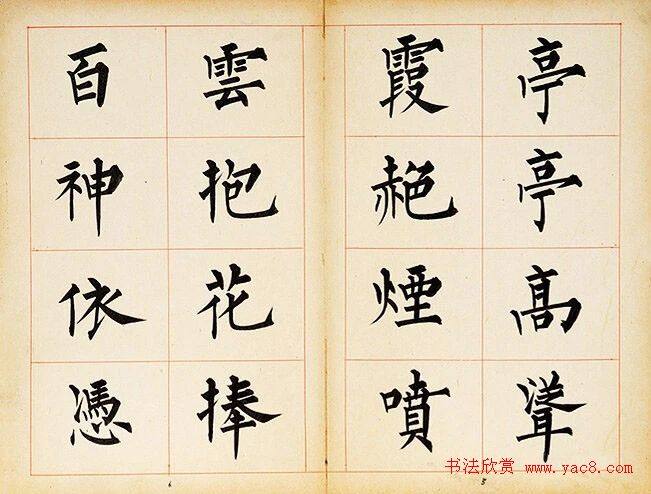 亭亭髙聳
霞赩煙噴
雲抱花捧
百神依憑
5
6
书法欣赏 www.yac8.com